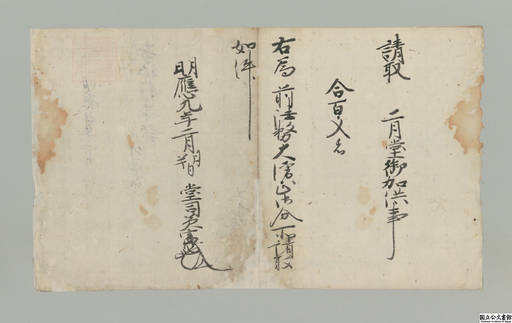 請取 二月堂御加供事
合百文者
右為前法務大僧正御分所請取
如件
明應九年二月朔日 堂司
国立公文書館